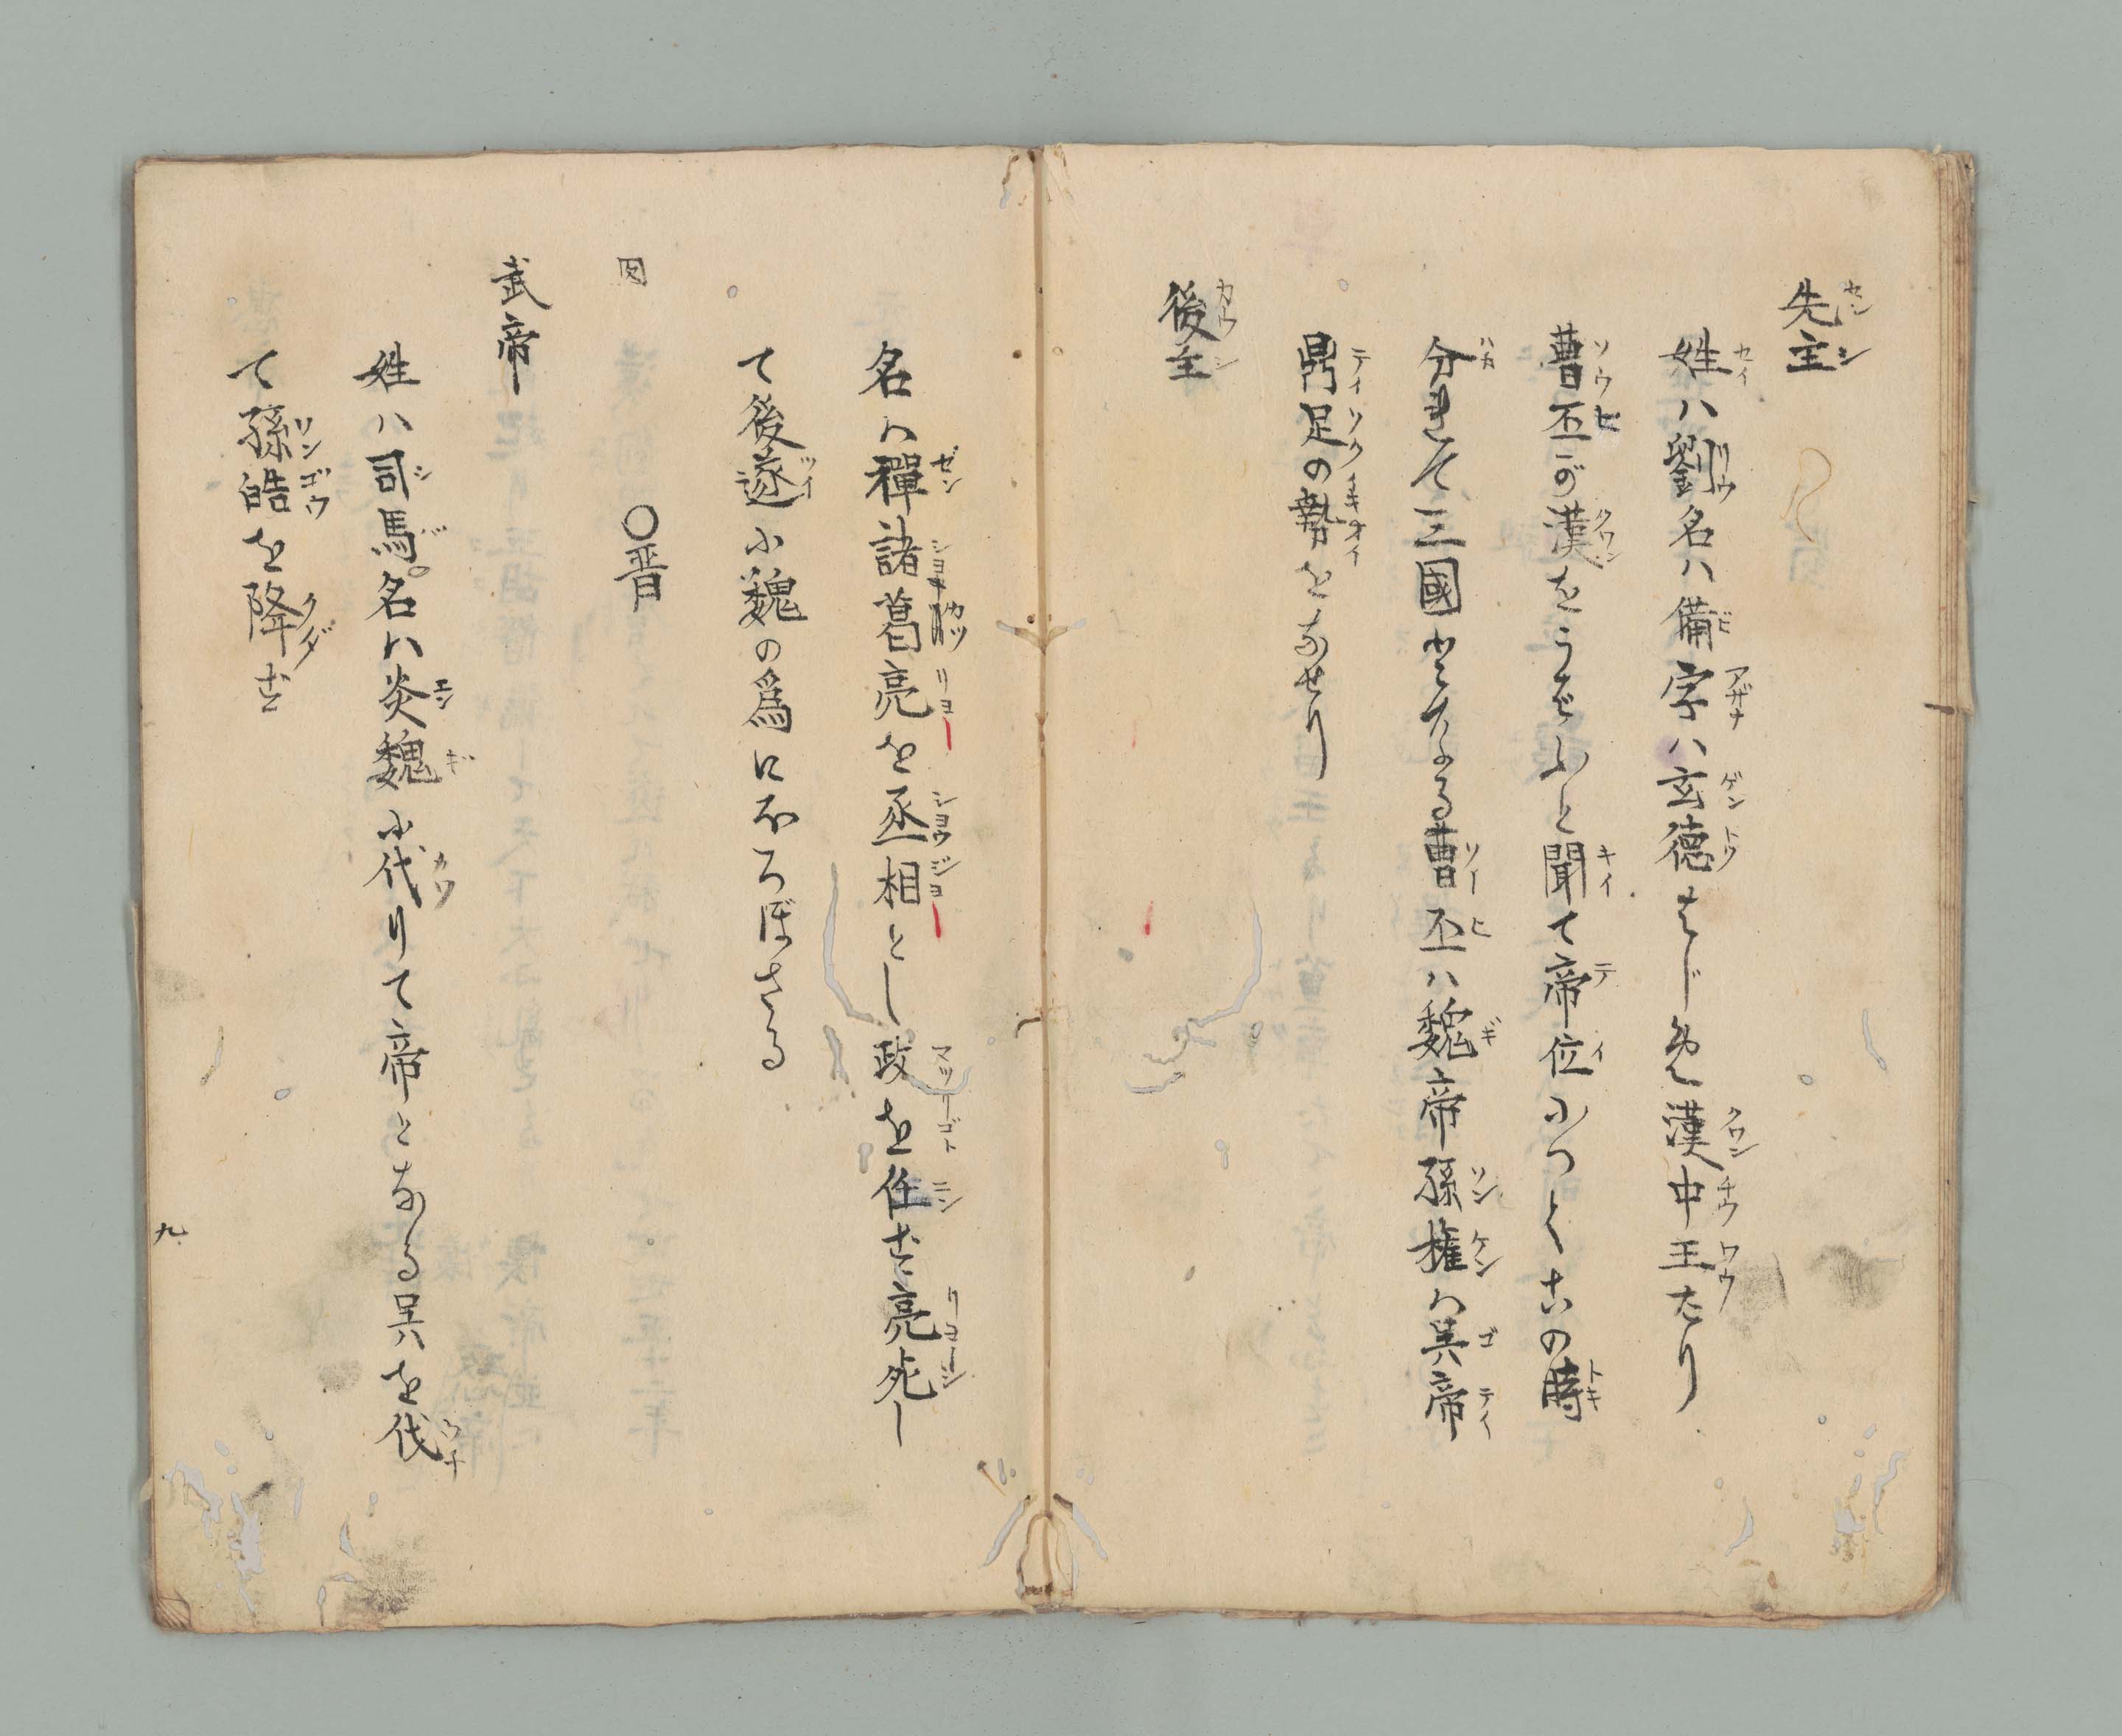 先主
姓ハ劉名ハ備字ハ玄徳はじめ漢中王たり
曹丕が漢をうばふと聞て帝位につく古の時
分れて三國となる曹丕ハ魏帝孫權ハ呉帝
鼎足の勢をなせり
後主
名ハ禪諸葛亮を丞相とし政を任す亮死し
て後遂に魏の爲にほろぼさる
図
〇晋
武帝
姓ハ司馬名ハ炎魏に代りて帝となる呉を伐
て孫皓を降す
九